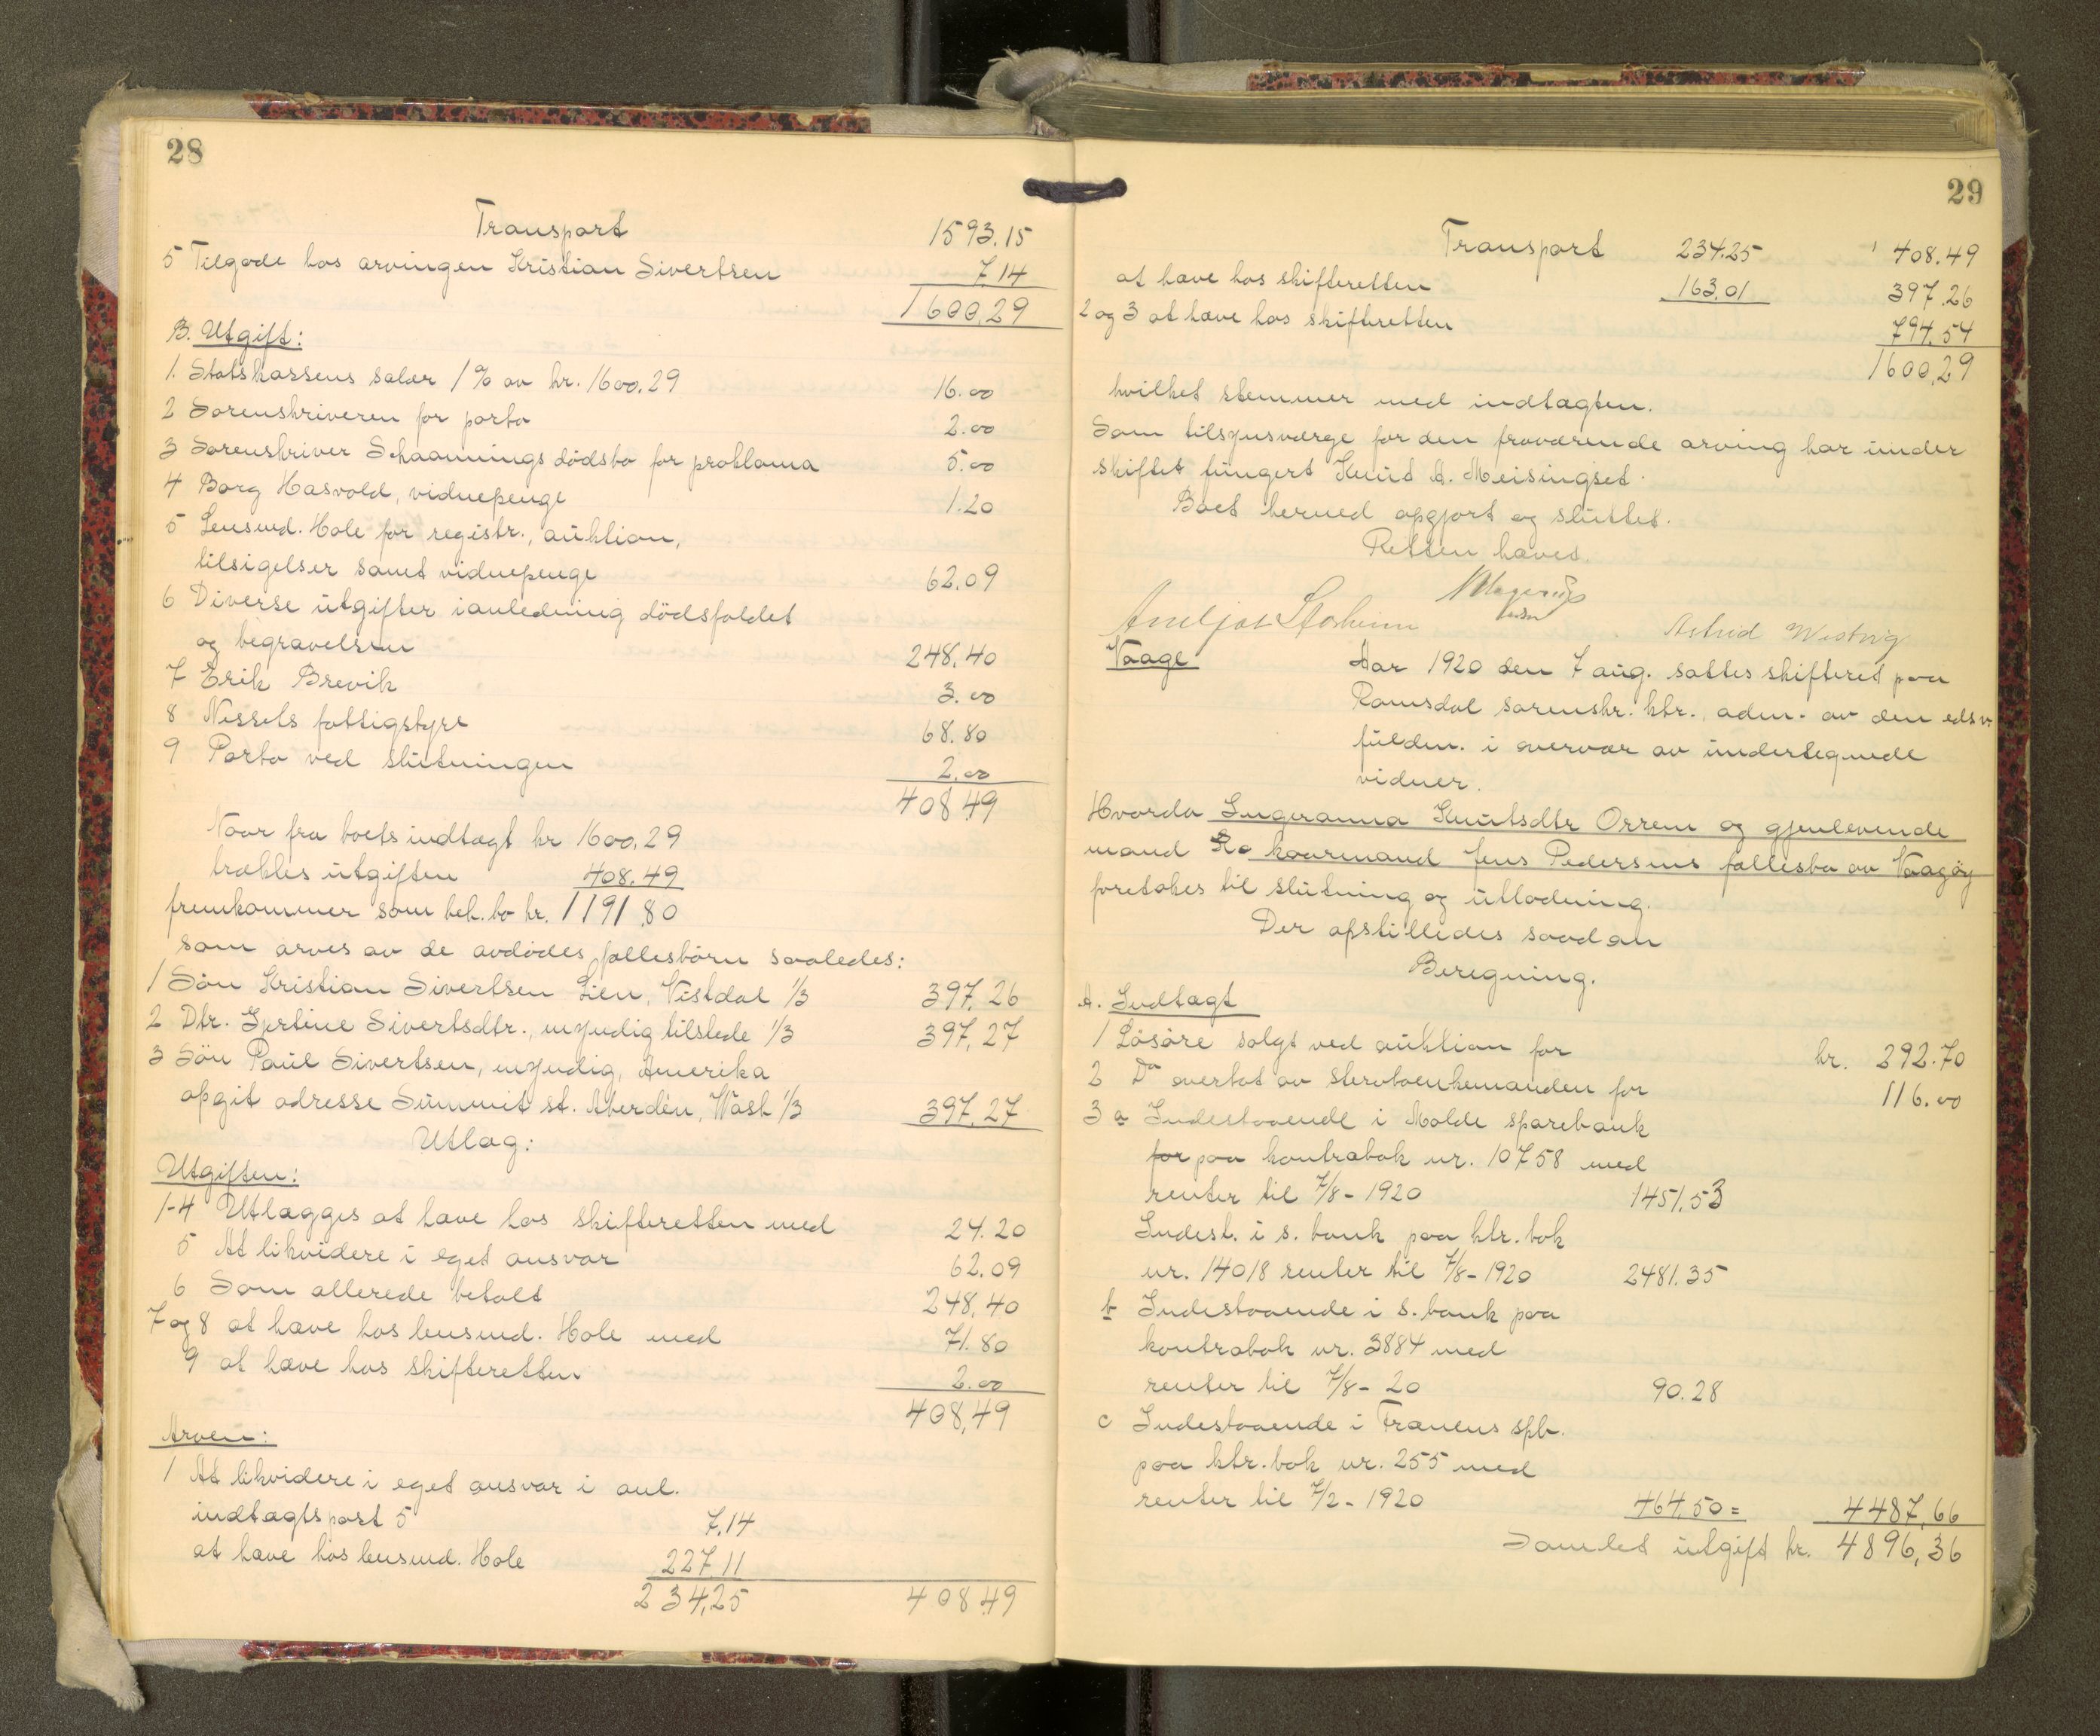 28
Transport 1593.15
5 Tilgode hos arvingen Kristian Sivertsen 7.14
1600,29
B. Utgift:
1. Statskassens salær 1% av kr. 1600.29 16.00
2 Sorenskriveren for porto 2.00
3 Sorenskriver Schaannings dödsbo for proklama 5.00
4 Borg Hasvold, vidnepenge 1.20
5 Lensmd. Hole for registr., auktion,
tilsigelser samt vidnepenge 62.09
6 Diverse utgifter ianledning dödsfaldet
og begravelsen 248.40
7 Erik Brevik 3.00
8 Nessets fattigstyre 68.80
9 Porto ved slutningen 2.00
408,49
Naar fra boets indtægt kr 1600.29
trækkes utgiften 408.49
fremkommer som beh. bo kr. 1191.80
som arves av de avdödes fællesbörn saaledes:
1 Sön Kristian Sivertsen Lien, Vistdal 1/3 397,26
2 Dtr. Gjertine Sivertsdtr., myndig tilstede 1/3 397,27
3 Sön Paul Sivertsen, myndig, Amerika
opgit adresse Summit st. Aberdén, Wash 1/3 397.27
Utlæg:
Utgiften:
1-4 Utlægges at hæve hos skifteretten med 24.20
5 At likvidere i eget ansvar 62.09
6 Som allerede betalt 248.40
7 og 8 at hæve hos lensmd. Hole med 71.80
9 at hæve hos skifteretten 2.00
408,49
Arven:
1 At likvidere i eget ansvar i anl.
indtægtspost 5 7.14
at hæve hos lensmd. Hole 227.11
234,25 408.49
29
Transport 234.25 408.49
at hæve hos skifteretten 163.01 397.26
2 og 3 at hæve hos skifteretten 794.54
1600,29
hvilket stemmer med indtægten.
Som tilsynsværge for den fraværende arving har under
skiftet fungert Knut A. Meisingset.
Boet hermed opgjort og sluttet.
Retten hævet.
Astrid Westvig
Vaage Aar 1920 den 7 aug. sattes skifteret paa
Romsdal sorenskr. ktr., adm. av den edsv.
fuldm. i overvær av undertegnede
vidner.
Hvorda Ingeranna Knutsdtr Orrem og gjenlevende
mand Ro kaarmand Jens Pedersens fællesbo av Vaagöy
foretakes til slutning og utlodning.
Der opstilledes saadan
Beregning.
A. Indtægt
1 Lösöre solgt ved auktion for kr. 292.70
2 Do overtat av stervboenkemanden for 116.00
3 a Indestaaende i Molde sparebank
for paa kontrabok nr. 10758 med
renter til 7/8 - 1920 1451.53
Indest. i s. bank paa ktr. bok
nr. 14018 renter til 7/8 - 1920 2481.35
b Indestaaende i s. bank paa
kontrabok nr. 3884 med
renter til 7/8 - 20 90.28
c Indestaaende i Frænens spb.
paa ktr. bok nr. 255 med
renter til 7/2 - 1920 464.50 = 4487,66
Samlet utgift kr. 4896,36